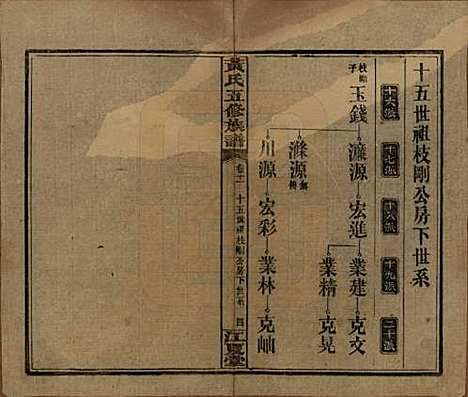 十五世祖枝剛公房下世系
十六派
十七派
十八派
十九派
二十派
枝剛子
玉錢
濂源
宏進
業建
克文
業精
克晃
滌源
川源
宏彩
業林
克岫
黃氏五修族譜
卷十一
十五世祖枝剛公房下世系
四
江夏堂